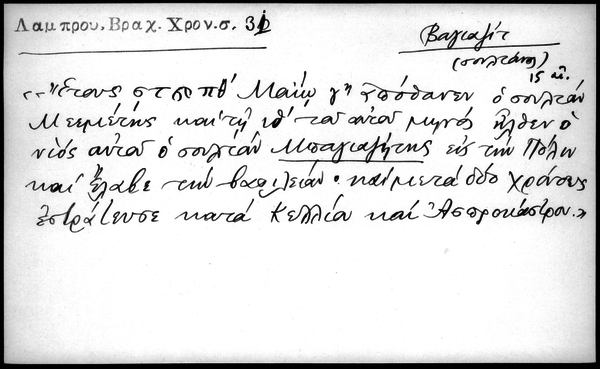 Λαμπρου, Βραχ. Χρον. σ. 31
Βαγιαζίτ
(σουλτάνος)
15 αἰ.
«Ἔτους ϛ ϡ π θ' Μαΐῳ γῃ ἀπόθανεν ὁ σουλτάν
Μεεμέτης καὶ τῇ ιθ' τοῦ αὐτοῦ μηνός ἦλθεν ὁ
υἱός αὐτοῦ ὁ σουλτάν Μπαγιαζήτης εἰς τήν Πόλιν
καί ἔλαβε τήν βασιλείαν· καί μετά δύο χρόνους
ἐστράτευσε κατά Κελλίου καί Ἀσπροκάστρου.»